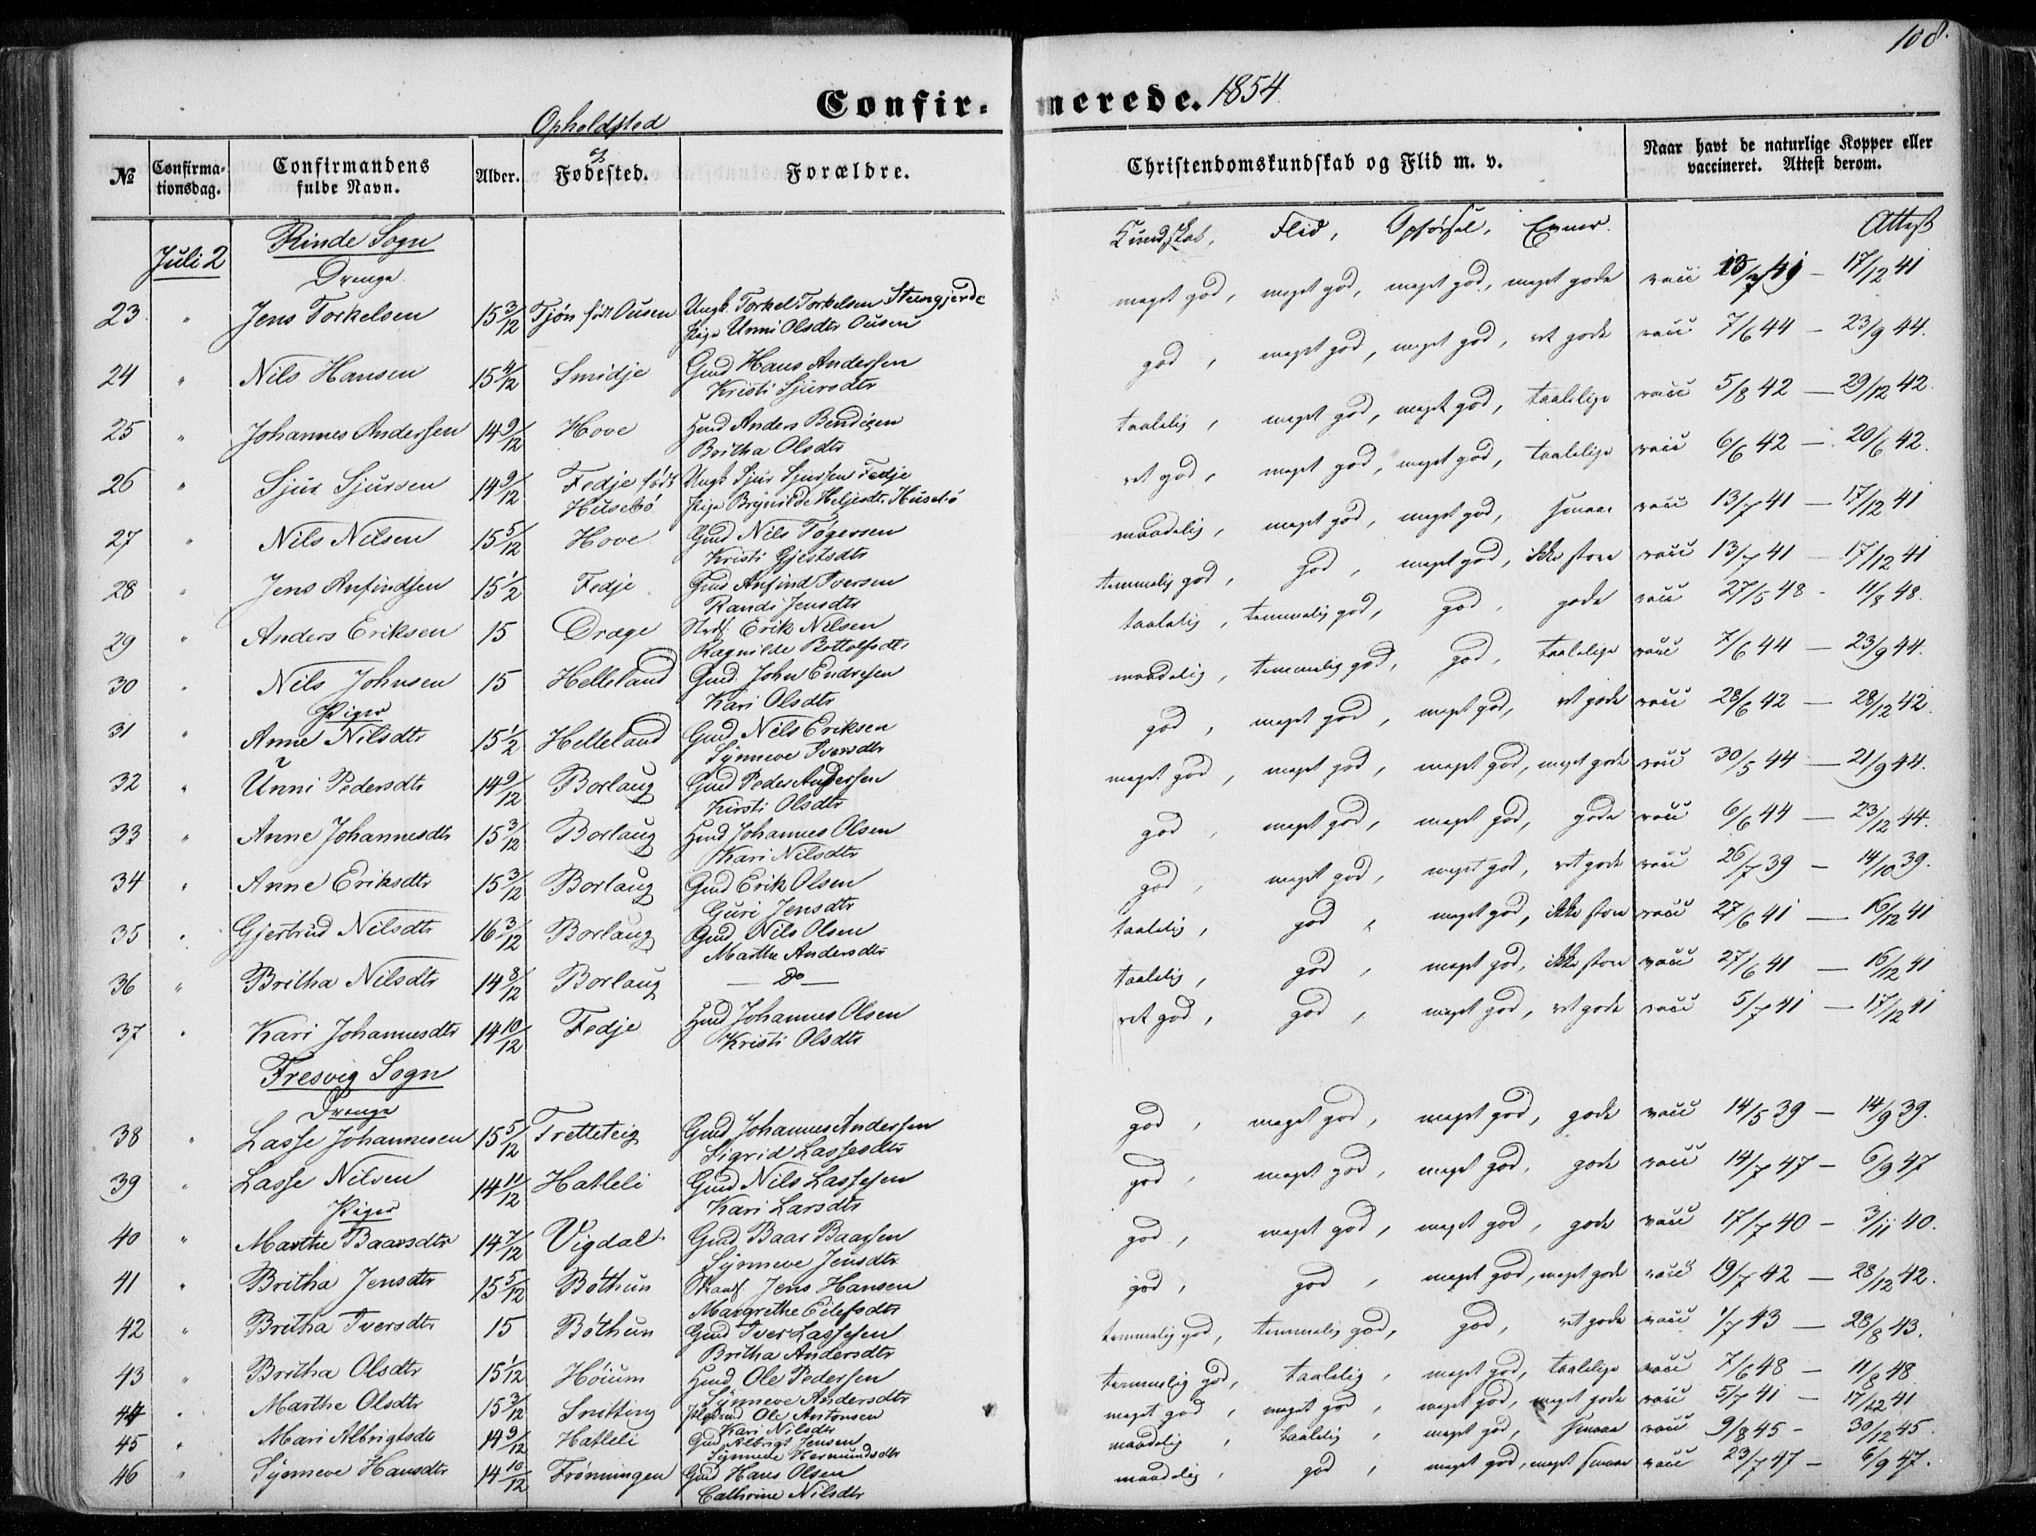 108.
Confirmerede. 1854.
Opholdsted
№ Confirmationsdag. Confirmandens fulde Navn. Alder. & Fødested. Forældre. Christendomskundskab og Flid m. v. Naar havt de naturlige Kopper eller vaccineret. Attest derom.
Rinde Sogn Kundskab, Flid, Opførsel, Evner. Attest
Juli 2
Drenge
23 " Jens Torkelsen 15 3/12 Tjøn født Ousen Ungk. Torkel Torkelsen Stengjerde meget god, meget god, meget god, meget gode vacc 13/7 41 – 17/12 41
Pige Unni Olsdtr Ousen
24 " Nils Hansen 15 4/12 Smidje Gmd Hans Andersen god, meget god, meget god, ret gode vacc 7/6 44 – 23/9 44.
Kristi Sjursdtr
25 " Johannes Andersen 14 9/12 Hove Hmd Anders Bendixen taalelig, meget god, meget god, taalelige vacc 5/8 42 – 29/12 42.
Britha Olsdtr
26 " Sjur Sjursen 14 9/12 Fedje født Husebø Ungk Sjur Sjursen Fedje ret god, meget god, meget god, taalelige vacc 6/6 42 – 20/6 42.
Pige Brynilde Heljesdtr Husebø
27 " Nils Nilsen 15 5/12 Hove Gmd Nils Tøgersen maadelig, meget god, meget god, smaae vacc 13/7 41 – 17/12 41
Kristi Gjestsdtr
28 " Jens Anfindsen 15 1/2 Fedje Gmd Anfind Iversen temmelig god, god, meget god, ikke store vacc 13/7 41 – 17/12 41
Randi Jensdtr
29 " Anders Eriksen 15 Dræge Erik Nilsen taalelig, temmelig god, god, gode vacc 27/5 48 - 11/8 48.
Ragnilde Bottolfsdtr
30 " Nils Johnsen 15 Helleland Gmd John Endresen maadelig, temmelig god, god, taalelige vacc 7/6 44 – 23/9 44.
Kari Olsdtr
Piger
31 " Anne Nilsdtr 15 1/2 Helleland Gmd Nils Eriksen god, meget god, meget god, ret gode vacc 28/6 42 – 28/12 42.
Synneve Iversdtr
32 " Unni Pedersdtr 14 9/12 Borlaug Gmd Peder Andersen meget god, meget god, meget god, meget gode vacc 30/5 44 – 21/9 44.
Kirsti Olsdtr
33 " Anne Johannesdtr 15 3/12 Borlaug Hmd Johannes Olsen god, meget god, meget god, gode vacc 6/6 44 – 23/12 44.
Kari Nilsdtr
34 " Anne Eriksdtr 15 3/12 Borlaug Gmd Erik Olsen god, meget god, meget god, ret gode vacc 26/7 39 – 14/10 39.
Guri Jensdtr
35 " Gjertrud Nilsdtr 16 3/12 Borlaug Gmd Nils Olsen taalelig, god, meget god, ikke store vacc 27/6 41 – 16/12 41
Marthe Andersdtr
36 " Britha Nilsdtr 14 8/12 Borlaug — Do — taalelig, god, meget god, ikke store vacc 27/6 41 – 16/12 41
37 " Kari Johannesdtr 14 10/12 Fedje Hmd Johannes Olsen ret god, god, meget god, ret gode vacc 5/7 41 – 17/12 41
Kristi Olsdtr
Fresvig Sogn
Drenge
38 " Lasse Johannesen 15 5/12 Tretteteig Gmd Johannes Andersen god, meget god, meget god, gode vacc 14/5 39 – 14/9 39.
Sigrid Lassesdtr
39 " Lasse Nilsen 14 11/12 Hatleli Gmd Nils Lassesen god, meget god, meget god, gode vacc 14/7 47 – 6/9 47
Kari Larsdtr
Piger
40 " Marthe Baarsdtr 14 7/12 Vigdal Gmd Baar Baarsen god, meget god, meget god, gode vacc 17/7 40 – 3/11 40.
Synneve Jensdtr
41 " Britha Jensdtr 15 5/12 Bøthun Jens Hansen god, god, meget god, meget gode vacc 19/7 42 – 28/12 42.
Margrethe Eilefsdtr
42 " Britha Iversdtr 15 Bøthun Gmd Iver Lassesen temmelig god, temmelig god, god, ret gode vacc 1/7 43 – 28/8 43.
Britha Andersdtr
43 " Britha Olsdtr 15 1/12 Høium Hmd Ole Pedersen temmelig god, taalelig, meget god, taalelige vacc 7/6 48 – 11/8 48.
Synneve Andersdtr
44 " Marthe Olsdtr 15 3/12 Snitting Ole Antonsen meget god, meget god, meget god, meget gode vacc 5/7 41 – 17/12 41
Kari Nilsdtr
45 " Mari Albrigtsdtr 14 9/12 Hatleli Gmd Albrigt Jensen maadelig, taalelig, meget god, smaae vacc 9/8 45 - 30/12 45.
Synneve Hermundsdtr
46 " Synneve Hansdtr 14 10/12 Frønningen Gmd Hans Olsen maadelig, god, meget god, meget smaae vacc 23/7 47 – 6/9 47.
Cathrine Nilsdtr